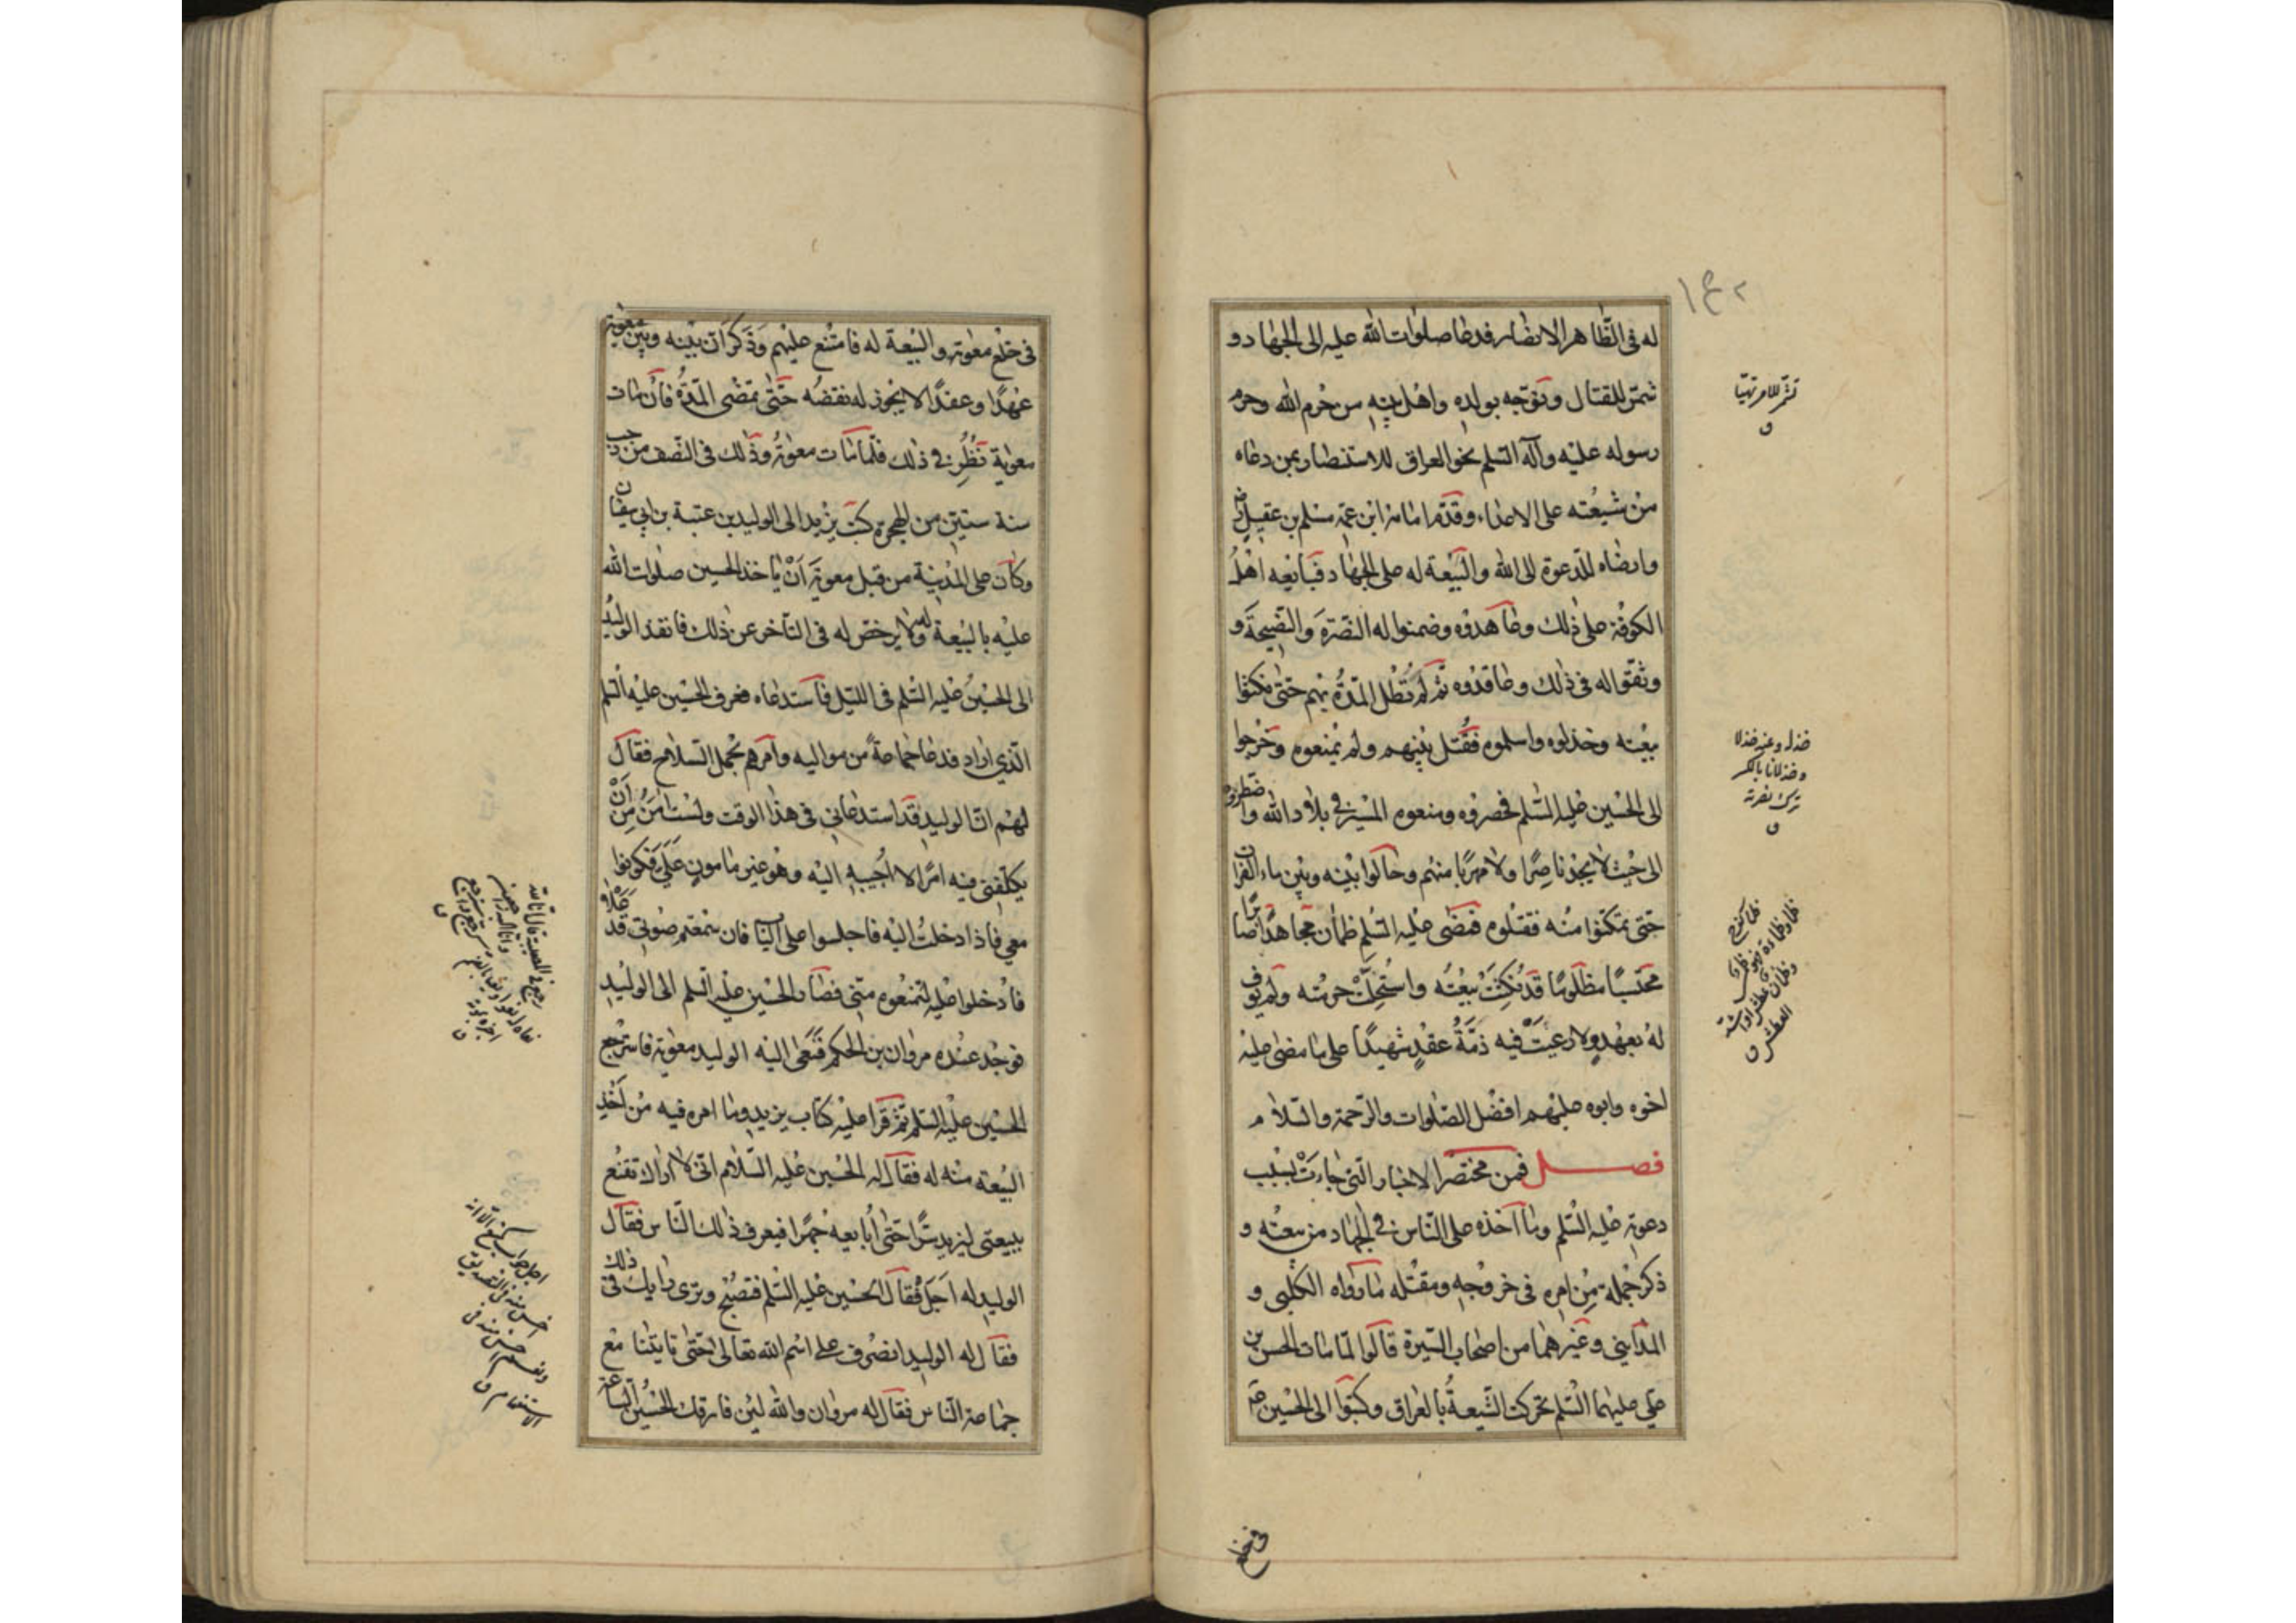 ١٤٢
له في الظاهر الانصار فدعا صلوات الله عليه الى الجهاد و
شمر للقتال وتوجه بولده واهل بيته من حرم الله وحرم
رسوله عليه وآله السلم نحو العراق للاستنصار بمن دعاه
من شيعته على الاعداء وقدم امامه ابن عمه مسلم بن عقيل رض
وارضاه للدعوة الى الله والبيعة له على الجهاد فبايعه اهل
الكوفة على ذلك وعاهدوه وضمنوا له النصرة والنصيحة و
وثقوا له في ذلك وعاقدوه ثم لم تطل المدة بهم حتى نكثوا
بيعته وخذلوه واسلموه فقتل بينهم ولم يمنعوه وخرجوا
الى الحسين عليه السلم فحصروه ومنعوه المسير في بلاد الله واضطروه
الى حيث لا يجد ناصرا ولا مهربا منهم وحالوا بينه وبين ماء الفرات
حتى تمكنوا منه فقتلوه فمضى عليه السلم ظمأن مجاهدا صابرا
محتسبا مظلوما قد نكثت بيعته واستحلت حرمته ولم يوف
له بعهد ولا رعيت فيه ذمة عقد شهيدا على ما مضى عليه
اخوه وابوه عليهم افضل الصلوات والرحمة والسلام
فصل فمن مختصر الاخبار التي جاءت بسبب
دعوته عليه السلم وما اخذه على الناس في الجهاد من بيعته و
ذكر جملة من امره في خروجه ومقتله ما رواه الكلبي و
المدايني وغيرهما من اصحاب السيرة قالوا لما مات الحسن بن
علي عليهما السلم تحركت الشيعة بالعراق وكتبوا الى الحسين ع
تشمر للامر تهيا
ق
خذله وعنه خذلا
وخذلانا بالكسر
ترك نصرته
ق
في خلع
في خلع معوية والبيعة له فامتنع عليهم وذكر ان بينه وبين معوية
عهدا وعقدا لا يجوز له نقضه حتى تمضى المدة فان مات
معوية نظر في ذلك فلما مات معوية وذلك في النصف من رجب
سنة ستين من الهجرة كتب يزيد الى الوليد بن عتبة بن ابي سفيان
وكان على المدينة من قبل معوية ان ياخذ الحسين صلوات الله
عليه بالبيعة له ولا يرخص له في التاخر عن ذلك فانفذ الوليد
الى الحسين عليه السلم في الليل فاستدعاه فعرف الحسين عليه السلم
الذي اراد فدعا جماعة من مواليه وامرهم بحمل السلاح فقال
لهم ان الوليد قد استدعاني في هذا الوقت ولست امن من ان
يكلفني فيه امرا لا اجيبه اليه وهو غير مامون علي فكونوا
معي فاذا دخلت اليه فاجلسوا على الباب فان سمعتم صوتي قد علا
فادخلوا عليه لتمنعوه مني فصار الحسين عليه السلم الى الوليد
فوجد عنده مروان بن الحكم فنعى اليه الوليد معوية فاسترجع
الحسين عليه السلم ثم قرا عليه كتاب يزيد وما امره فيه من اخذ
البيعة منه له فقال له الحسين عليه السلام اني لا اراك تقنع
ببيعتي ليزيد سرا حتى أبايعه جهرا فيعرف ذلك الناس فقال
الوليد له اجل فقال الحسين عليه السلم فتصبح وترى رايك في ذلك
فقال له الوليد انصرف على اسم الله تعالى حتى تاتينا مع
جماعة الناس فقال له مروان والله لئن فارقك الحسين الساعة